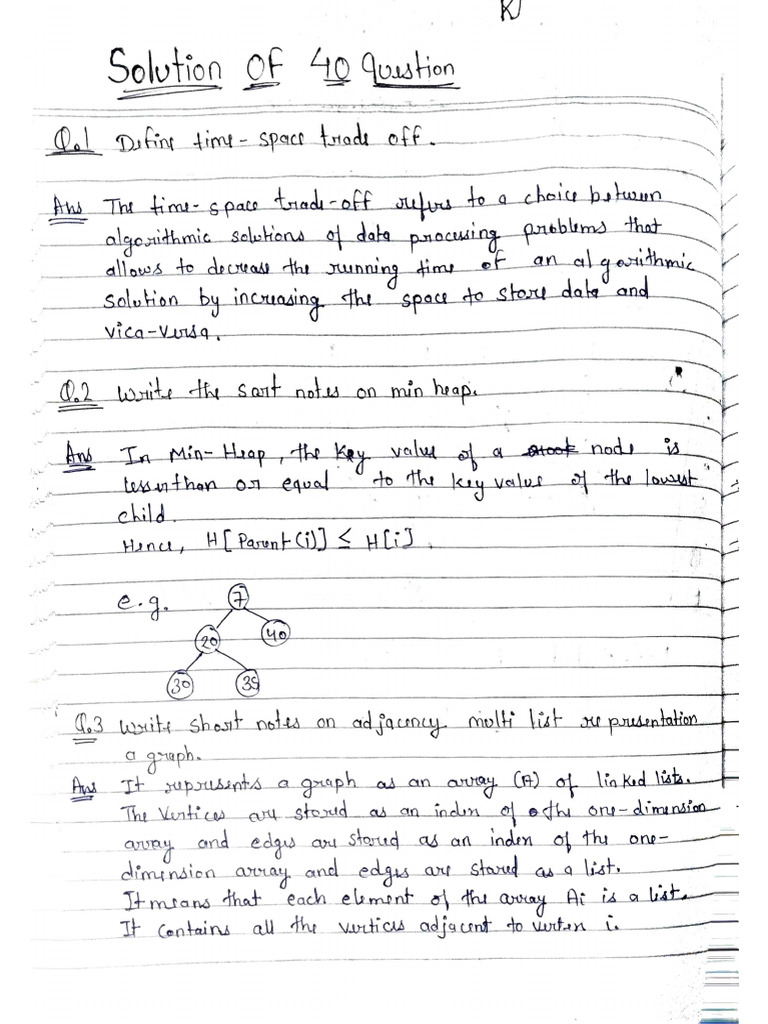 KJ
Solution OF 40 Question
Q.1 Define time-space trade off.
Ans The time-space trade-off refers to a choice between
algorithmic solutions of data processing problems that
allows to decrease the running time of an algorithmic
solution by increasing the space to store data and
vica-versa.
Q.2 Write the sort notes on min heap.
Ans In Min-Heap, the key value of a node is
lessenthan or equal to the key value of the lowest
child.
Hence, H[Parent(i)] ≤ H[i].
e.g. 7
20 40
30 35
Q.3 Write short notes on adjacency multi list representation
a graph.
Ans It represents a graph as an array (A) of linked lists.
The Vertices are stored as an index of the one-dimension
array and edges are stored as an index of the one-
dimension array and edges are stored as a list.
It means that each element of the array Ai is a list.
It contains all the vertices adjacent to vertex i.